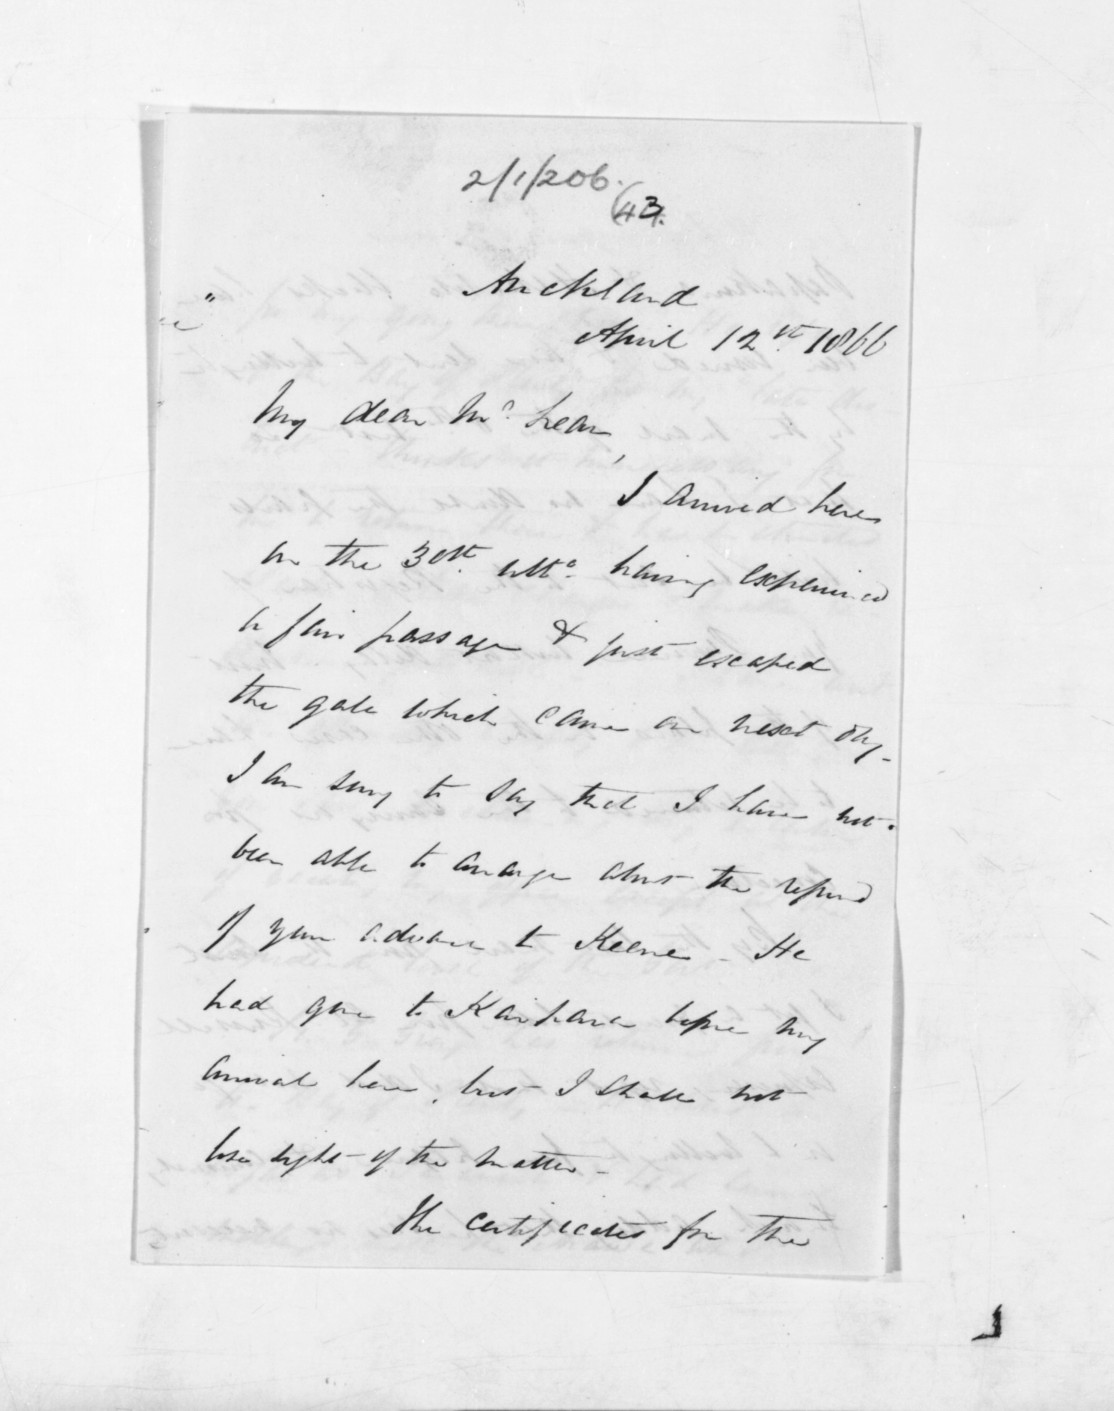 2/1/206.
(43.
Auckland
April 12th. 1866
My dear Mc.Lean,
I arrived here
on the 30th. ulto. having experienced
a fair passage & just escaped
the gale which came on next day.
I am sorry to say that I have not
been able to arrange about the refund
of your advance to Keene - He
had gone to Kaipara before my
arrival here, but I shall not
lose sight of the matter -
The certificates for the